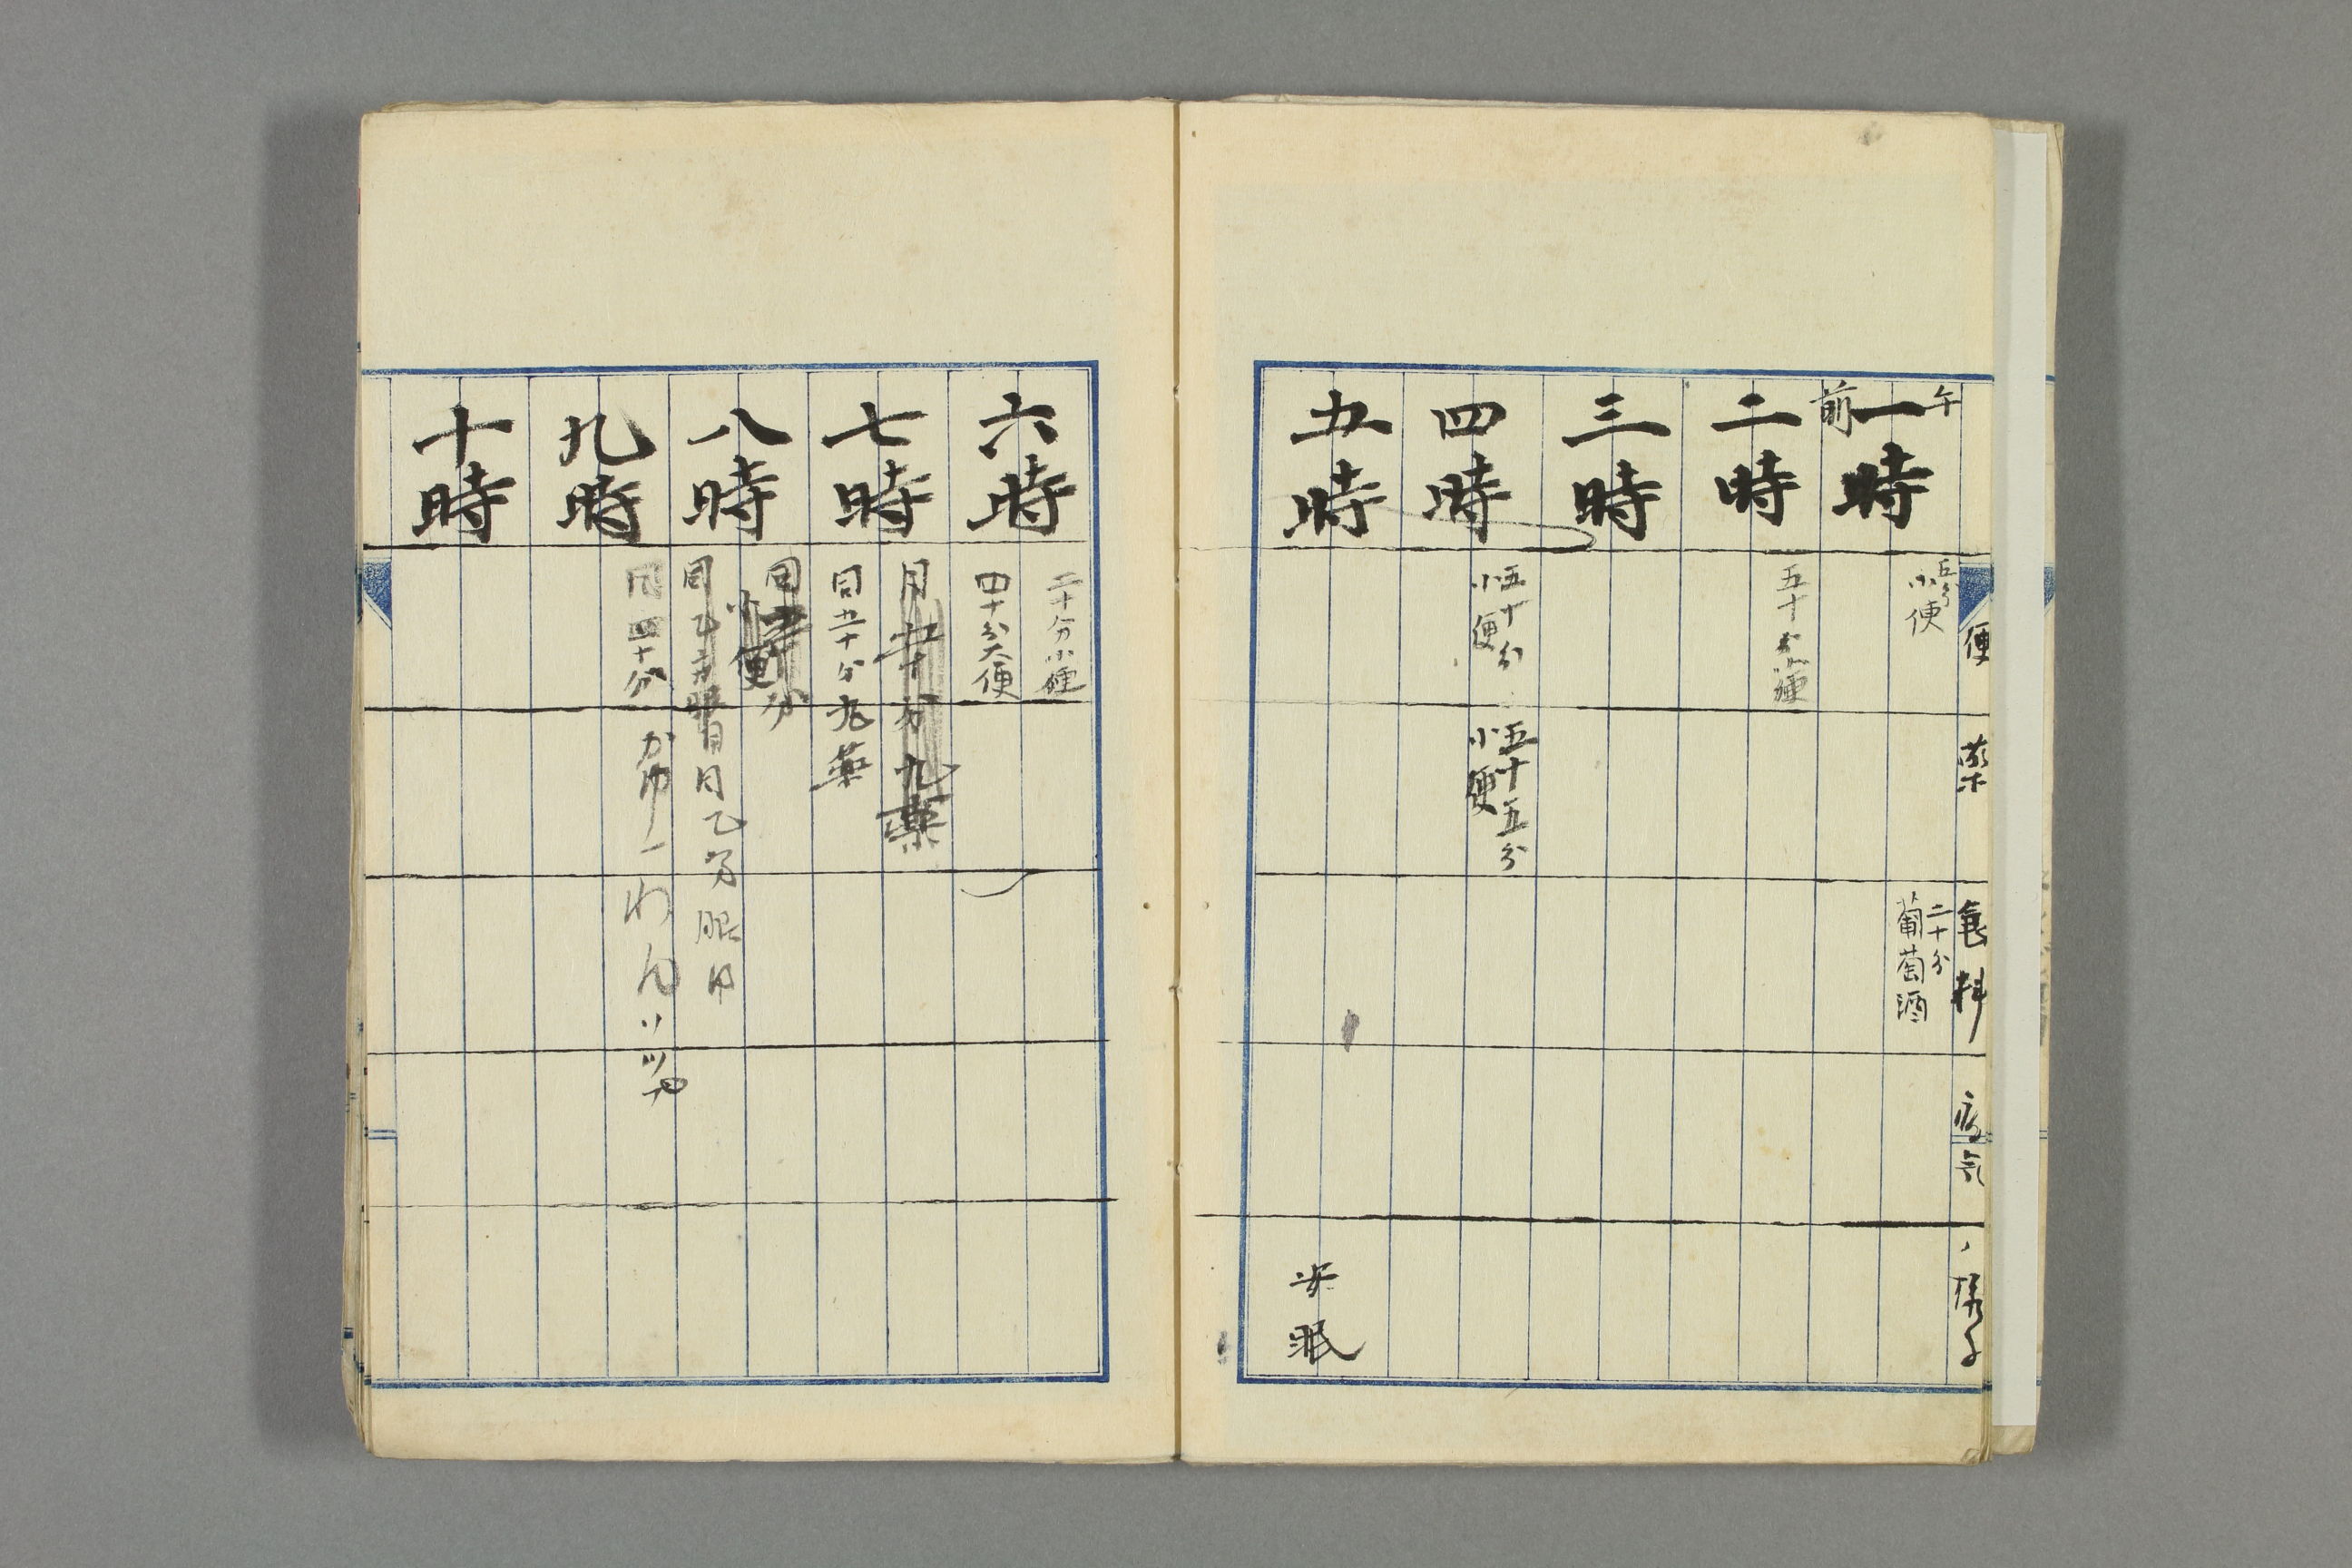 便
薬
食料
病気
様子
午前
一時
五分
小便
二十分
葡萄酒
二時
五十分小便
三時
四時
五十分
小便
五十五分
小便
五時
安眠
六時
二十分小便
四十分大便
七時
同五十分丸薬
同五十分丸薬
八時
小便
九時
同四十分
かゆ一わん
十時